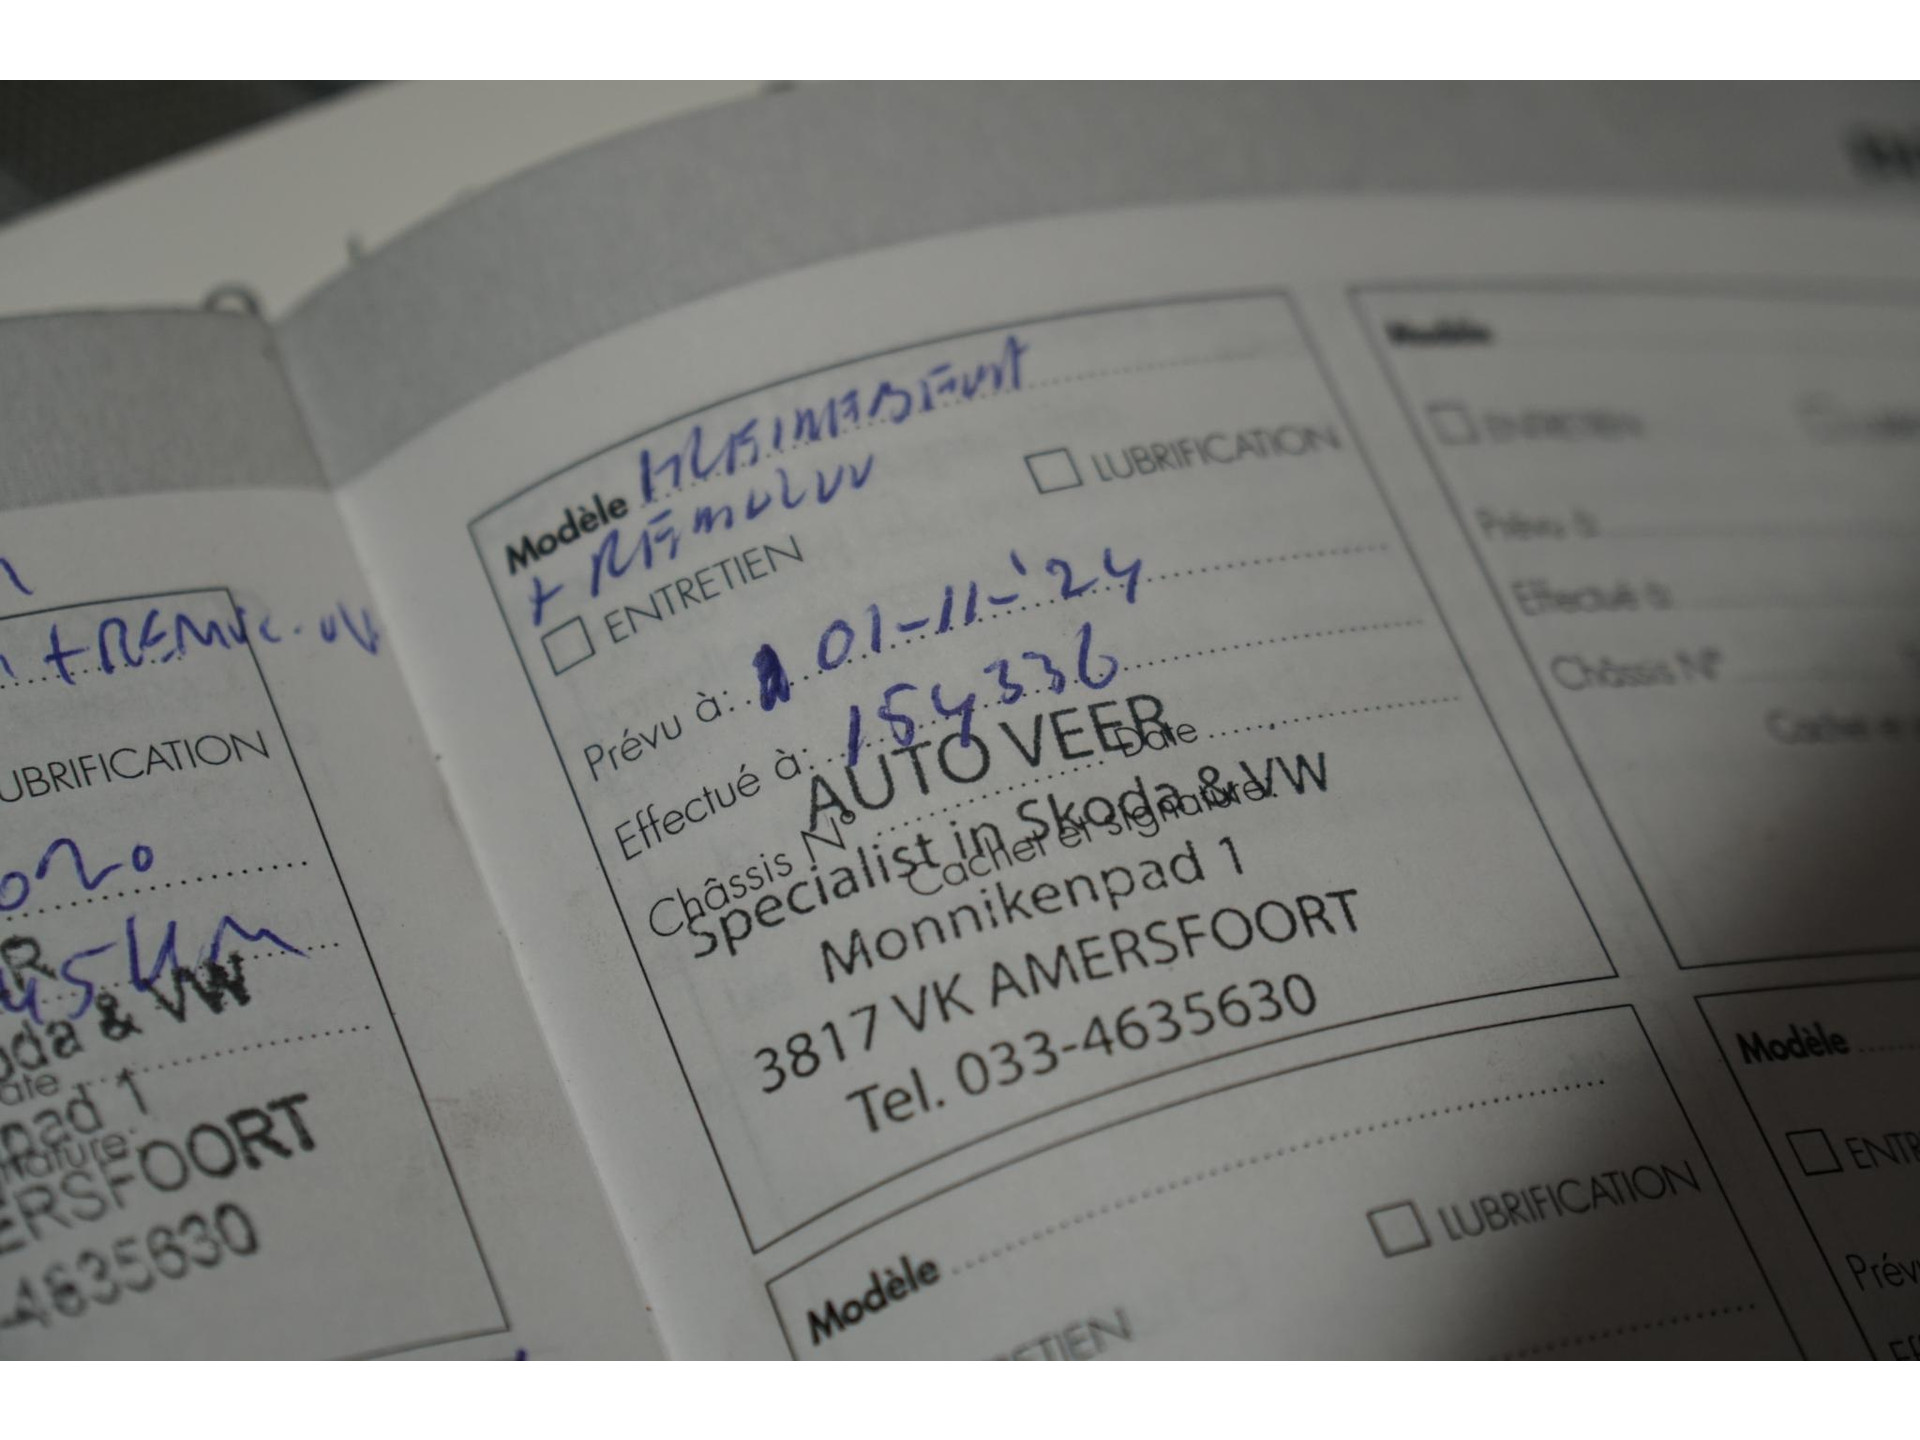 + REMOLOV
UBRIFICATION
2020
45 km
R
oda & VW
ate
pad 1
nature.
ERSFOORT
-4635630
Modèle KLEINEBEURT
+ REMOLOV
ENTRETIEN
LUBRIFICATION
Prévu à: 01-11-'24
Effectué à: 154336
Châssis N° Date
Cachet et signature.
AUTO VEER
Specialist in Skoda & VW
Monnikenpad 1
3817 VK AMERSFOORT
Tel. 033-4635630
Modèle
LUBRIFICATION
ETIEN
Modèle
ENTRETIEN
Prévu à
Effectué à
Châssis N°
Cachet e
Modèle
ENTR
Prév